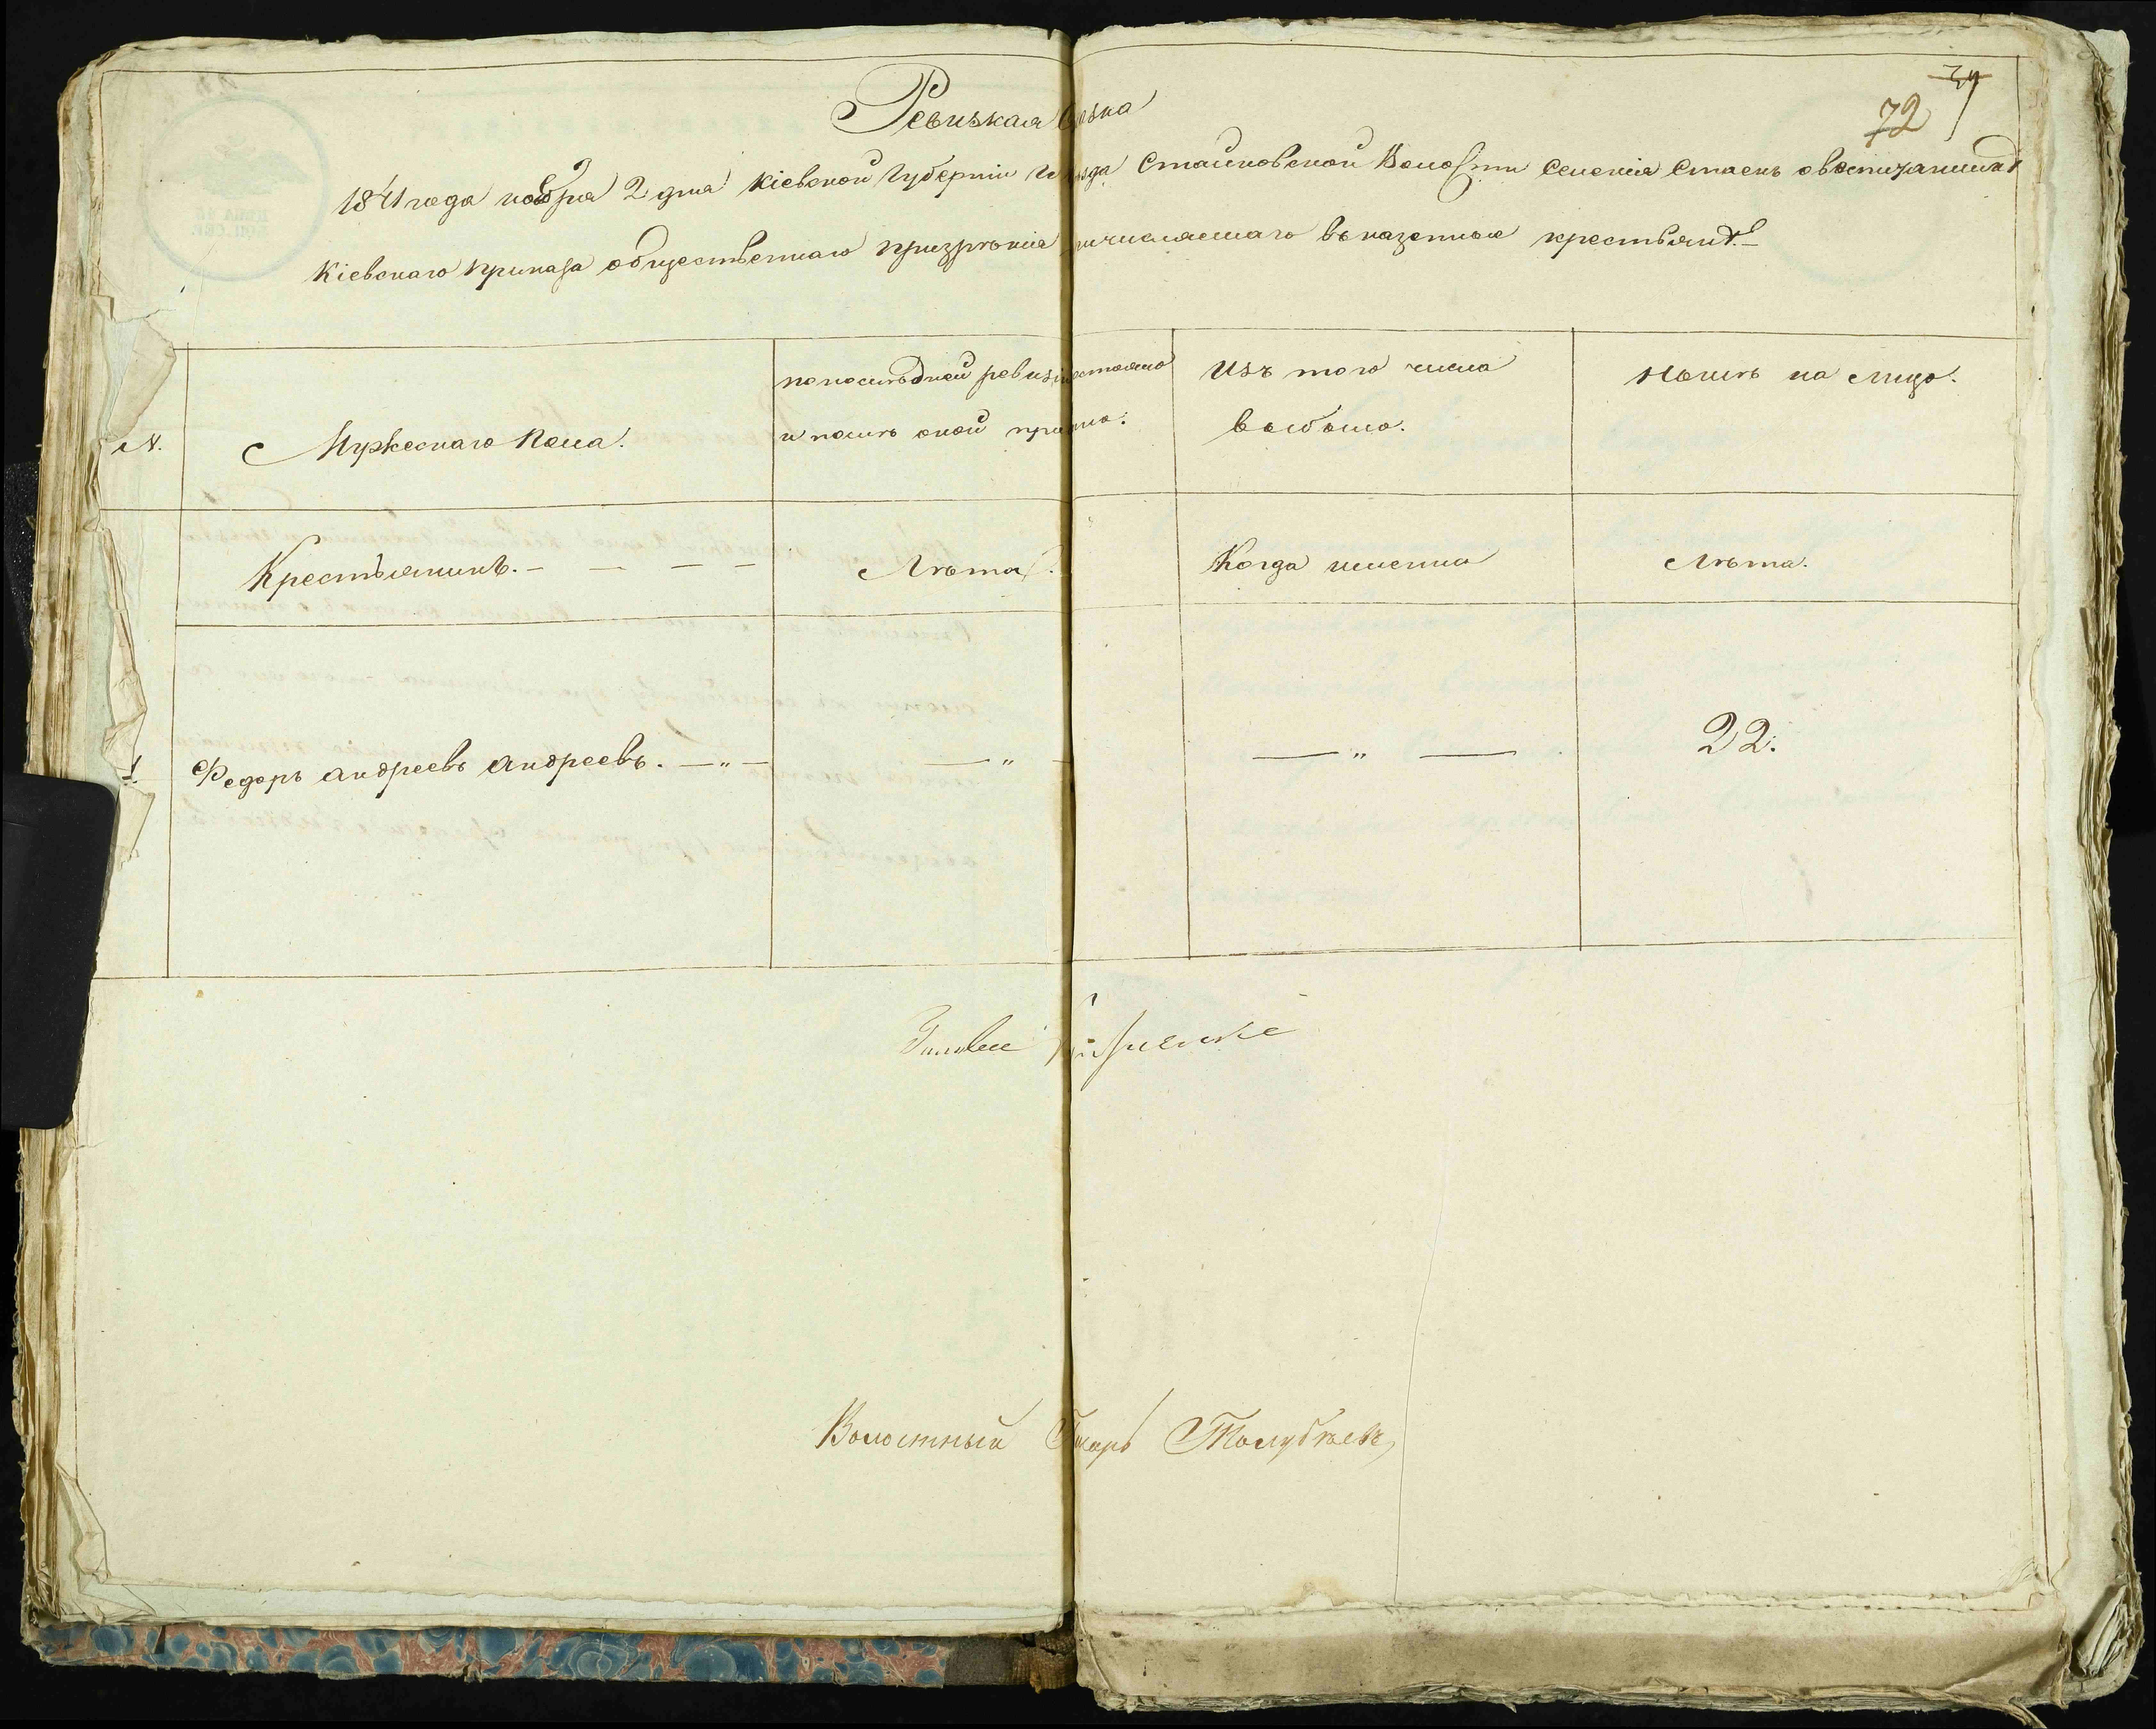 34
72
Ревизкая Сказка
1841 года ноября 2 дня Кіевской Губерніи и уѣзда Стайковской Волости Селенія Стаекъ о воспитанникѣ
Кіевскаго приказа общественнаго призрѣнія причисляемаго въ казенные крестьяне
N.
Мужескаго Пола.
по послѣдней ревизіи состояло
и послѣ оной прибыло.
Изъ того числа
выбыло.
Нынѣ на лицо.
Крестьянинъ.
Лѣта.
Когда именно
Лѣта.
1.
Федоръ Андреевъ Андреевъ.
22.
Волостный Писарь Голубѣевъ